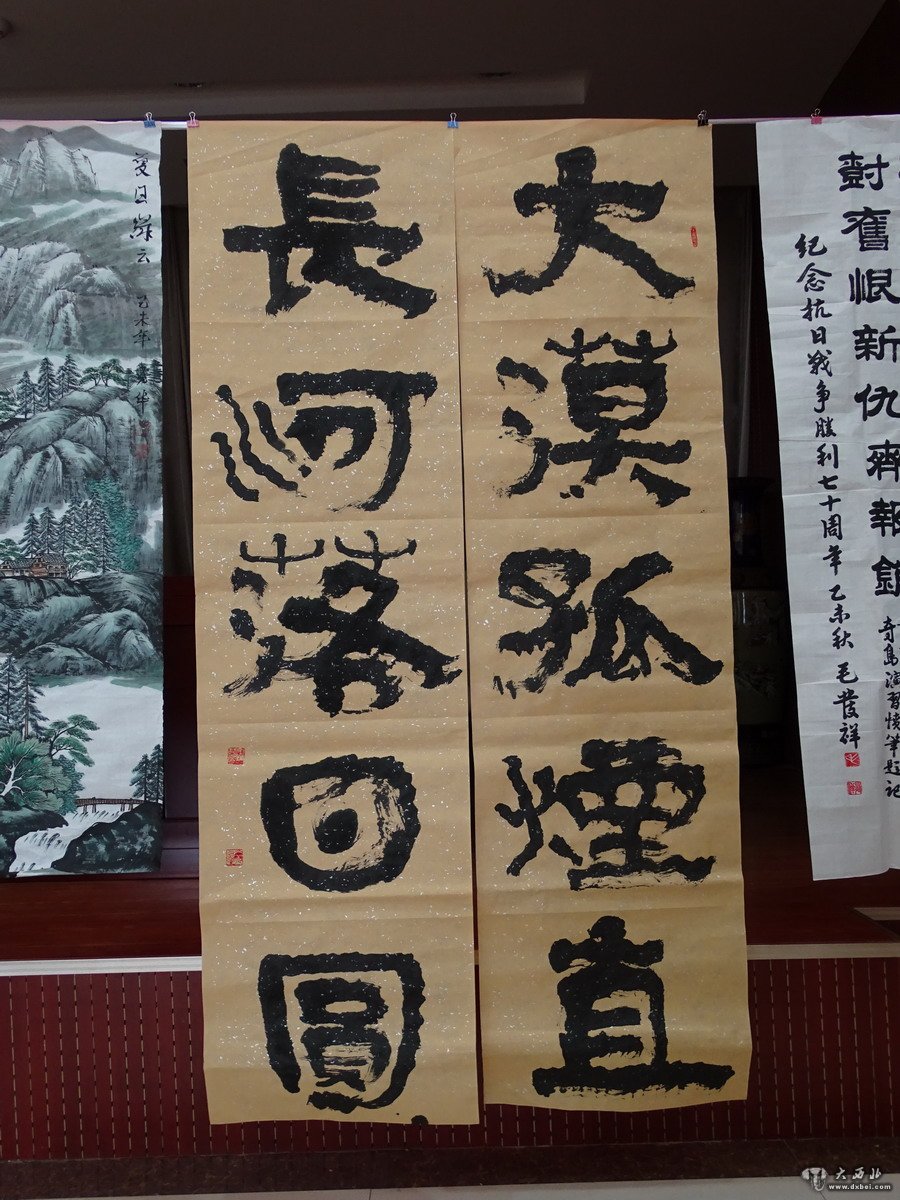 舊恨新仇齊報
紀念抗日戰争勝利七十周年 乙未秋 毛發祥
大漠孤煙直
長河落日圓
乙未年
大西北
www.dxbei.com